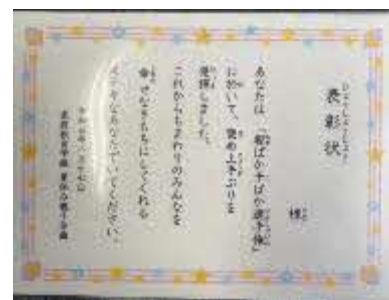 表彰状
様
あなたは、「親ばか子ばか選手権」
において、褒め上手ぶりを
発揮しました。
これからもまわりのみんなを
幸せなきもちにしてくれる
ステキなあなたでいてください。